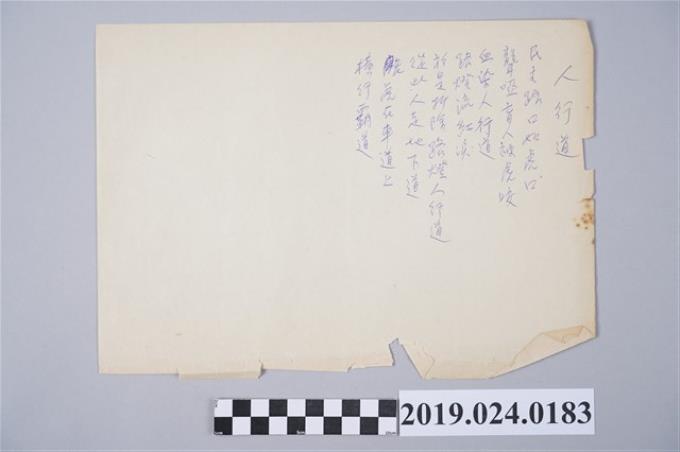 人行道
民主路口如虎口
聾啞盲人被虎咬
血染人行道
路燈流紅淚
於是拆除路燈人行道
從此人走地下道
虎在車道上
橫行霸道
2019.024.0183